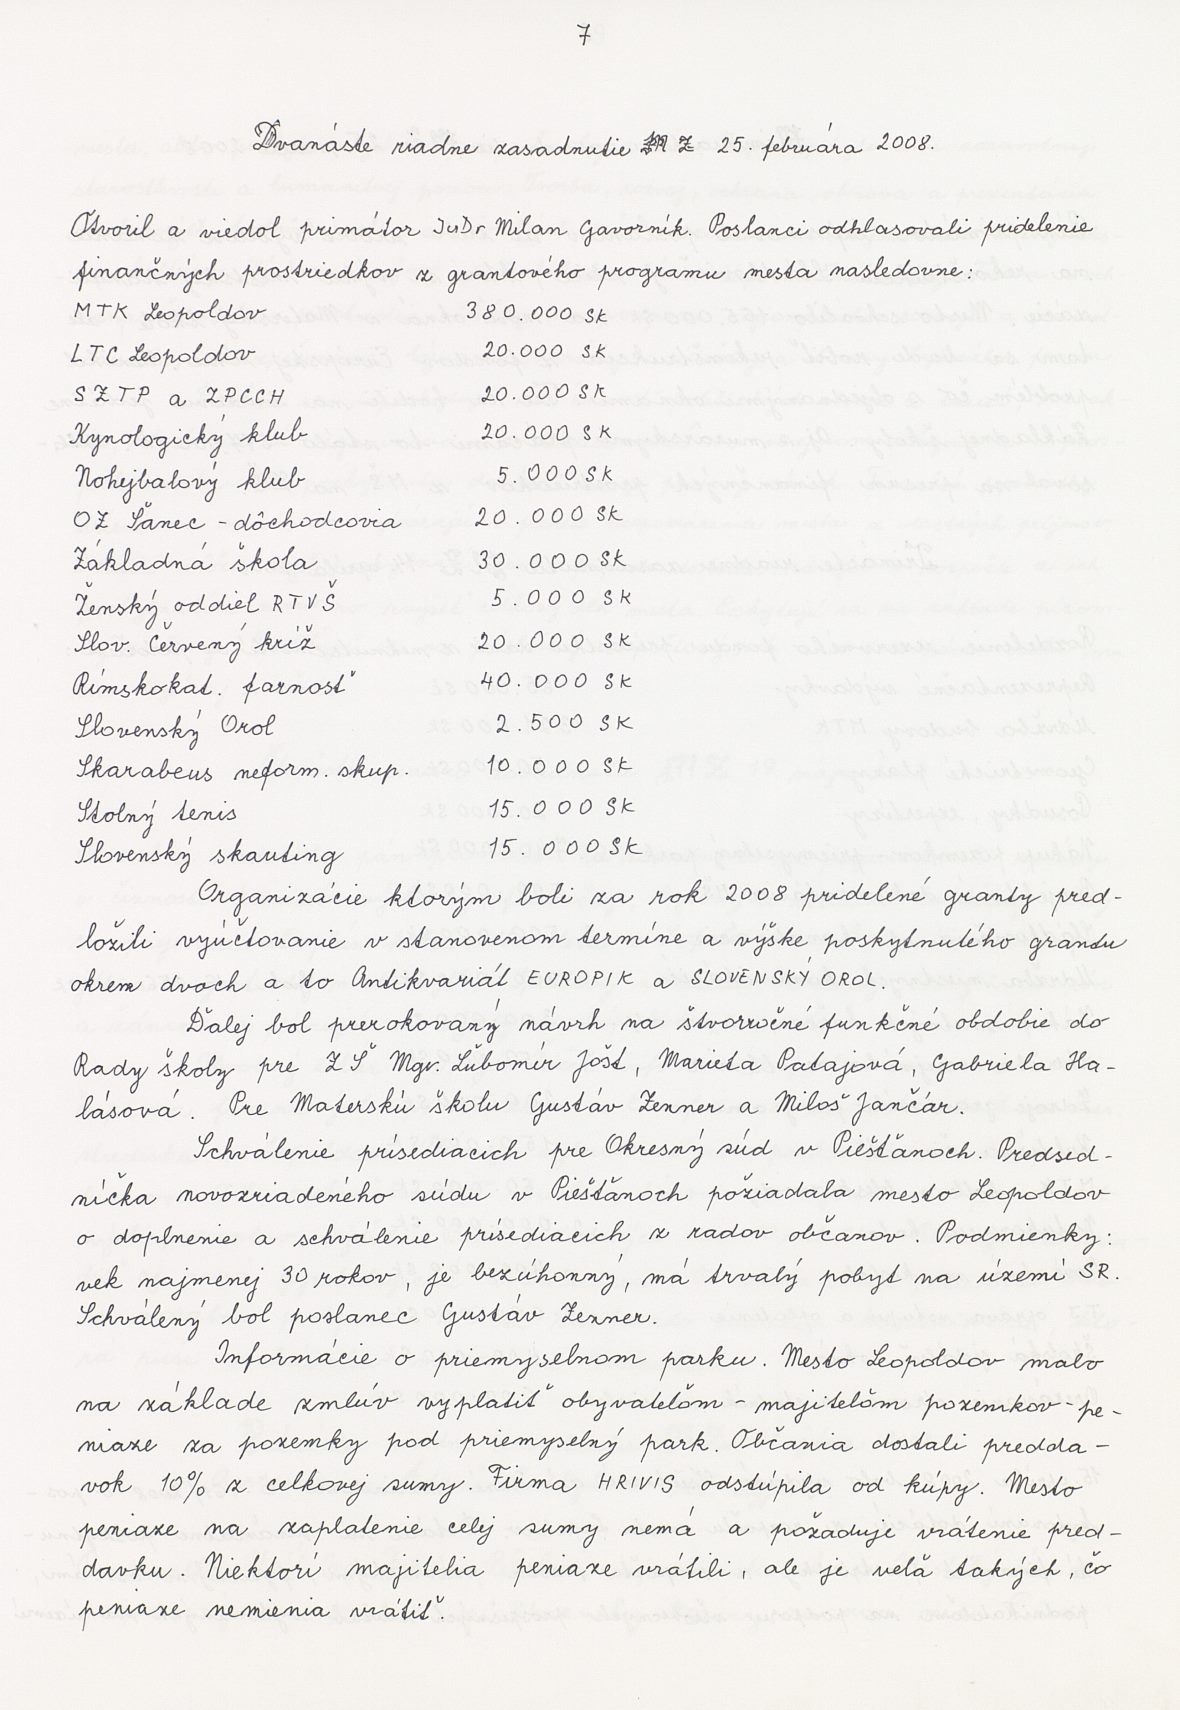 7
Dvanáste riadne zasadnutie MZ 25. februára 2008.
Otvoril a viedol primátor JuDr Milan Gavorník. Poslanci odhlasovali pridelenie
finančných prostriedkov z grantového programu mesta nasledovne:
MTK Leopoldov 380.000 Sk
LTC Leopoldov 20.000 Sk
SZTP a ZPCCH 20.000 Sk
Kynologický klub 20.000 Sk
Nohejbalový klub 5.000 Sk
OZ Šanec - dôchodcovia 20.000 Sk
Základná škola 30.000 Sk
Ženský oddiel RTVŠ 5.000 Sk
Slov. Červený kríž 20.000 Sk
Rímskokat. farnosť 40.000 Sk
Slovenský Orol 2.500 Sk
Skarabeus neform. skup. 10.000 Sk
Stolný tenis 15.000 Sk
Slovenský skauting 15.000 Sk
Organizácie ktorým boli za rok 2008 pridelené granty pred-
ložili vyúčtovanie v stanovenom termíne a výške poskytnutého grantu
okrem dvoch a to Antikvariát EUROPIK a SLOVENSKÝ OROL.
Ďalej bol prerokovaný návrh na štvorročné funkčné obdobie do
Rady školy pre ZŠ Mgr. Ľubomír Jošt, Marieta Patajová, Gabriela Ha-
lásová. Pre Materskú školu Gustáv Zenner a Miloš Jančár.
Schválenie prísediacich pre Okresný súd v Piešťanoch. Predsed-
níčka novozriadeného súdu v Piešťanoch požiadala mesto Leopoldov
o doplnenie a schválenie prísediacich z radov občanov. Podmienky:
vek najmenej 30 rokov, je bezúhonný, má trvalý pobyt na území SR.
Schválený bol poslanec Gustáv Zenner.
Informácie o priemyselnom parku. Mesto Leopoldov malo
na základe zmlúv vyplatiť obyvateľom - majiteľom pozemkov - pe-
niaze za pozemky pod priemyselný park. Občania dostali predda-
vok 10% z celkovej sumy. Firma HRIVIS odstúpila od kúpy. Mesto
peniaze na zaplatenie celej sumy nemá a požaduje vrátenie pred-
davku. Niektorí majitelia peniaze vrátili, ale je veľa takých, čo
peniaze nemienia vrátiť.